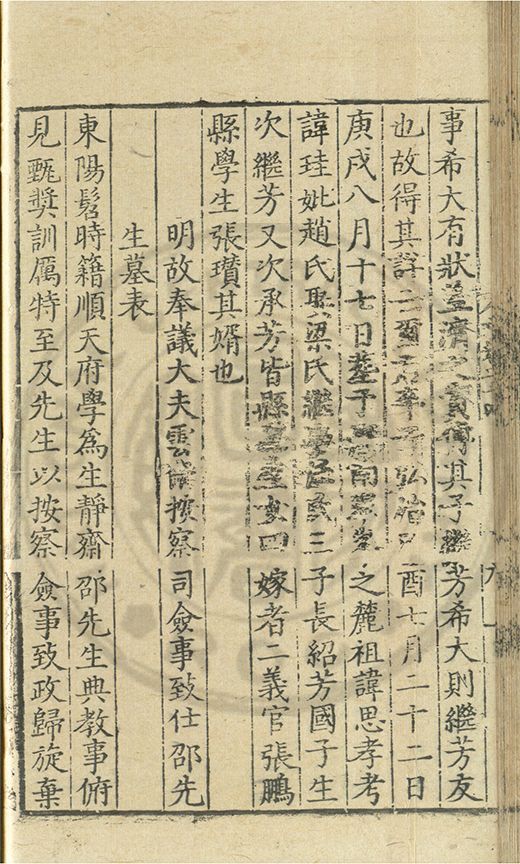 事希大有狀並濟之實得其子繼芳希大則繼芳友
也故得其詳二酉弘治酉七月二十二日
庚戌八月十七日塟子之麓祖諱思孝考
諱珪妣趙氏娶梁氏繼三子長紹芳國子生
次繼芳又次承芳皆縣學生女四嫁者二義官張鵬
縣學生張瓚其婿也
明故奉議大夫雲南按察司僉事致仕邵先
生墓表
東陽髫時籍順天府學為生靜齋邵先生典教事俯
見甄奬訓厲特至及先生以按察僉事致政歸旋棄